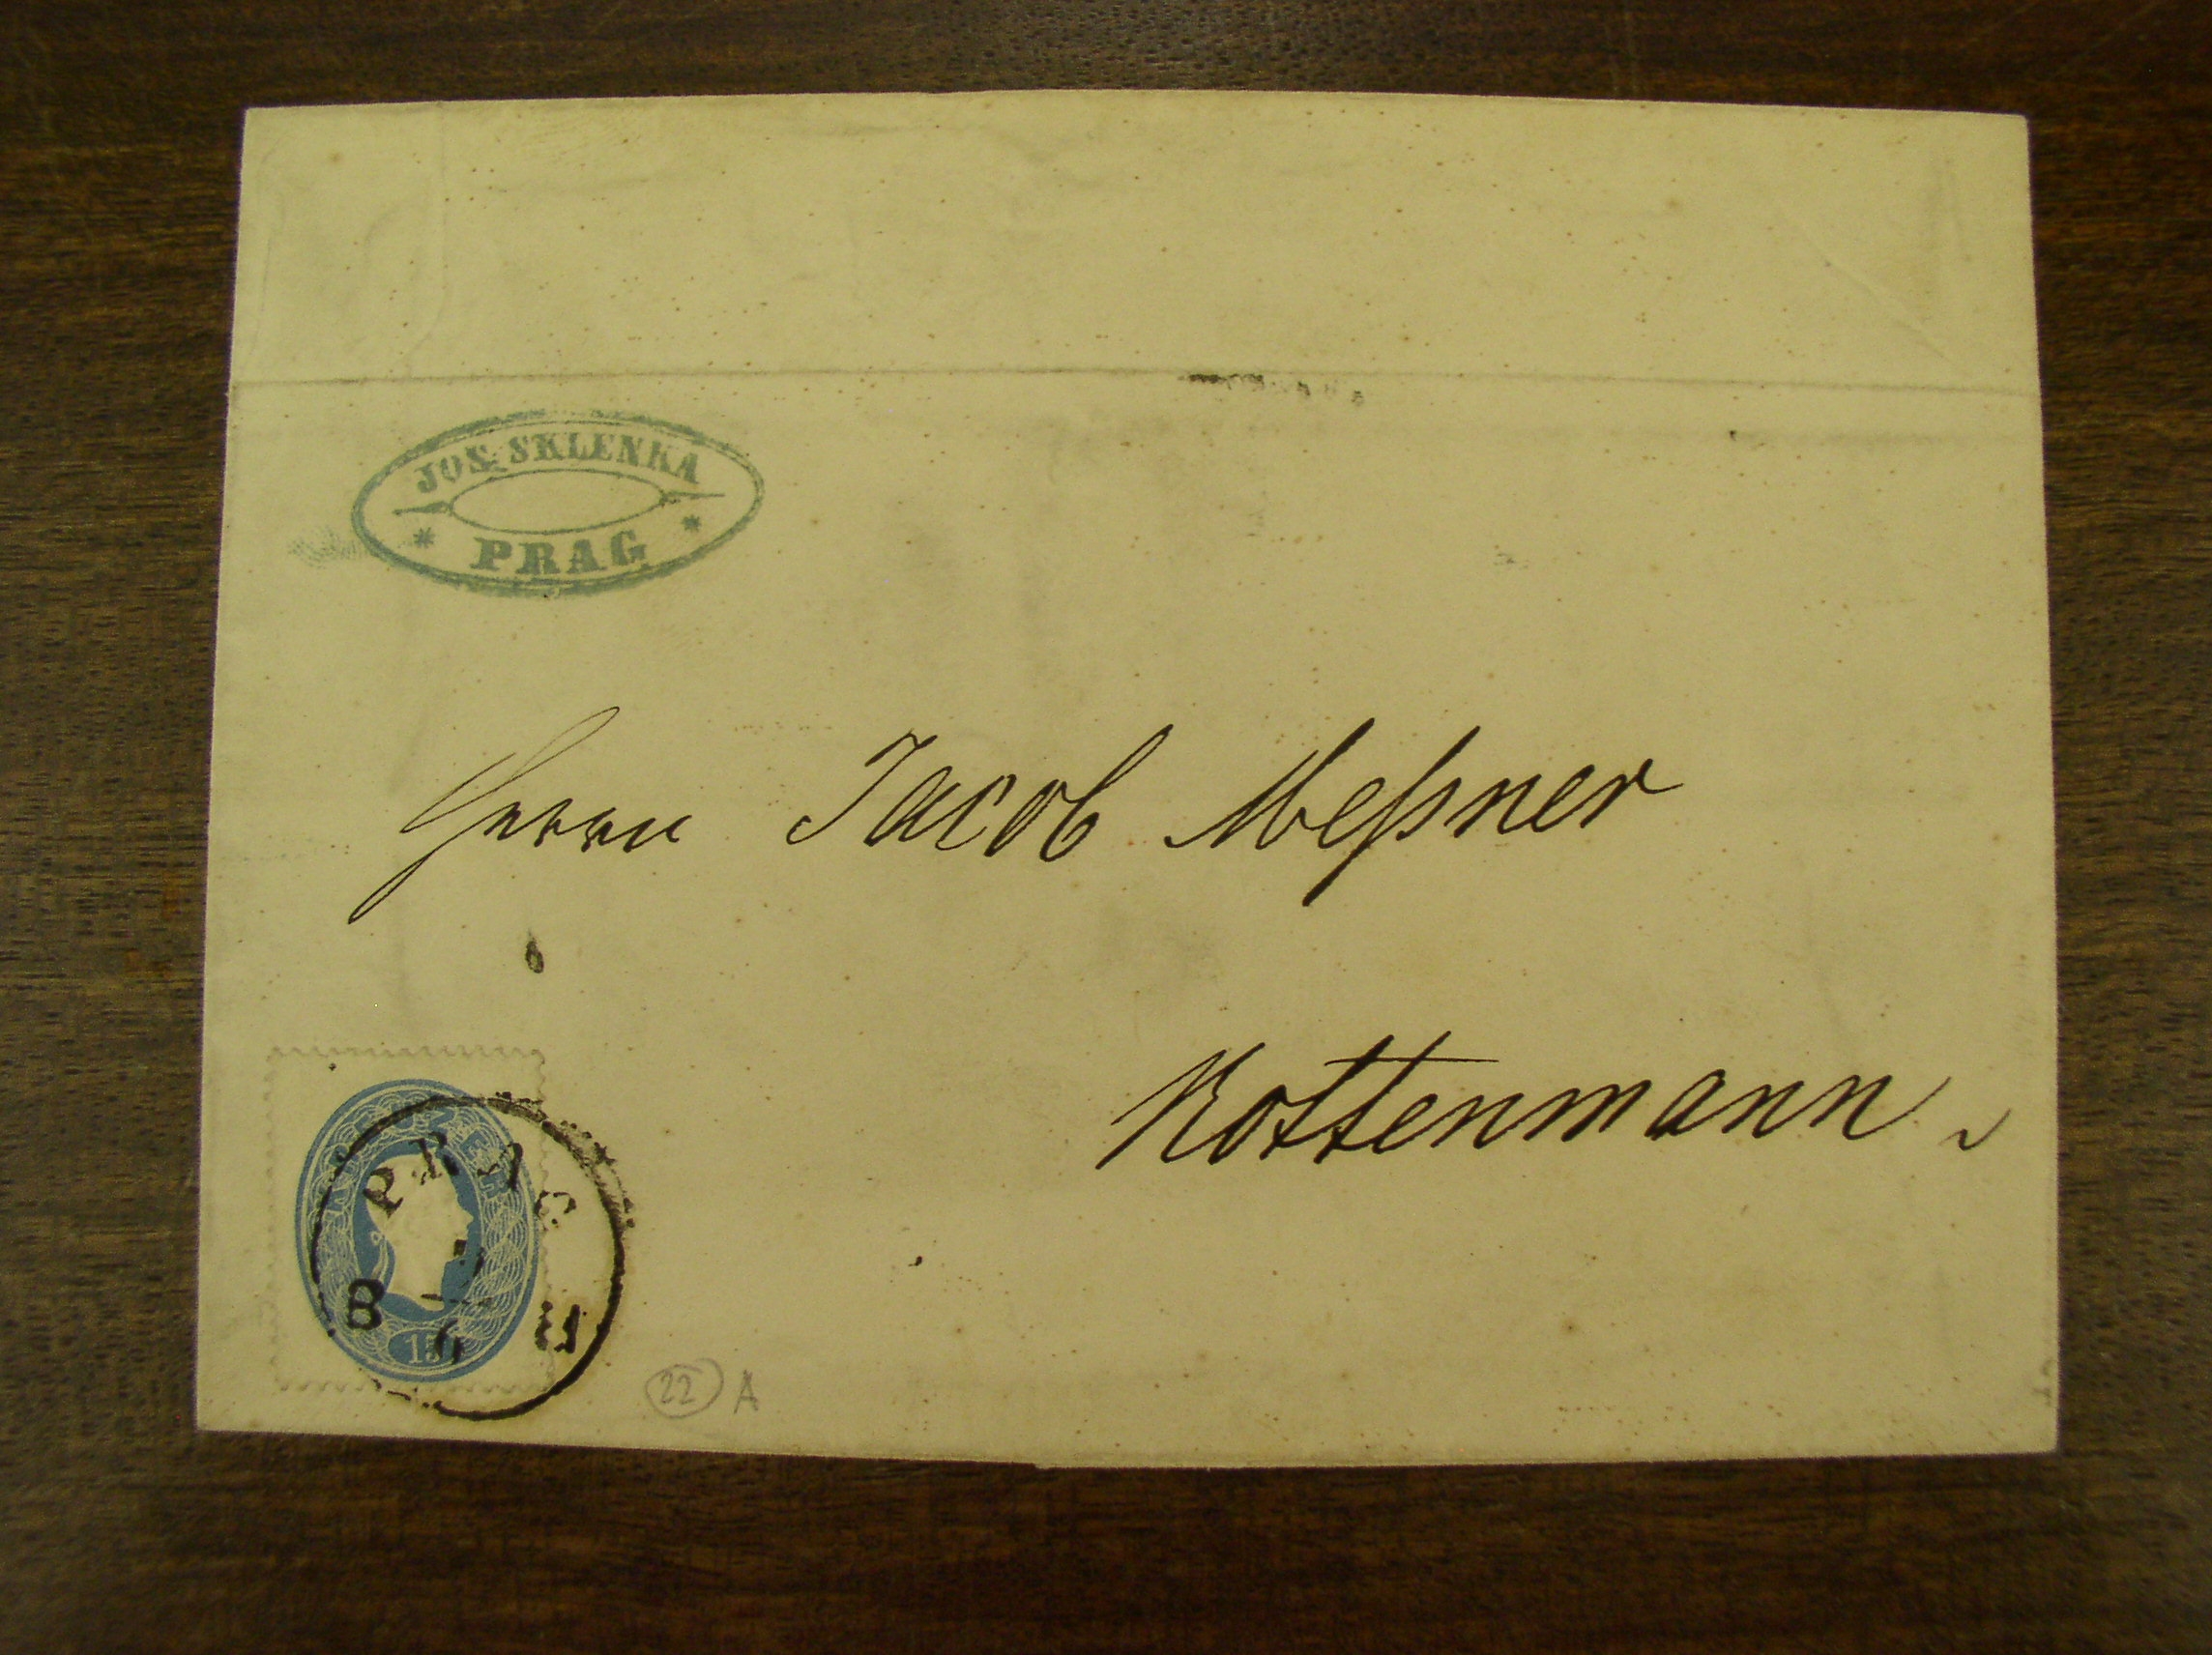 JOS. SKLENKA
PRAG
Herrn Jacob Meßner
Rottenmann.
PRAG
8
6
15
22 A